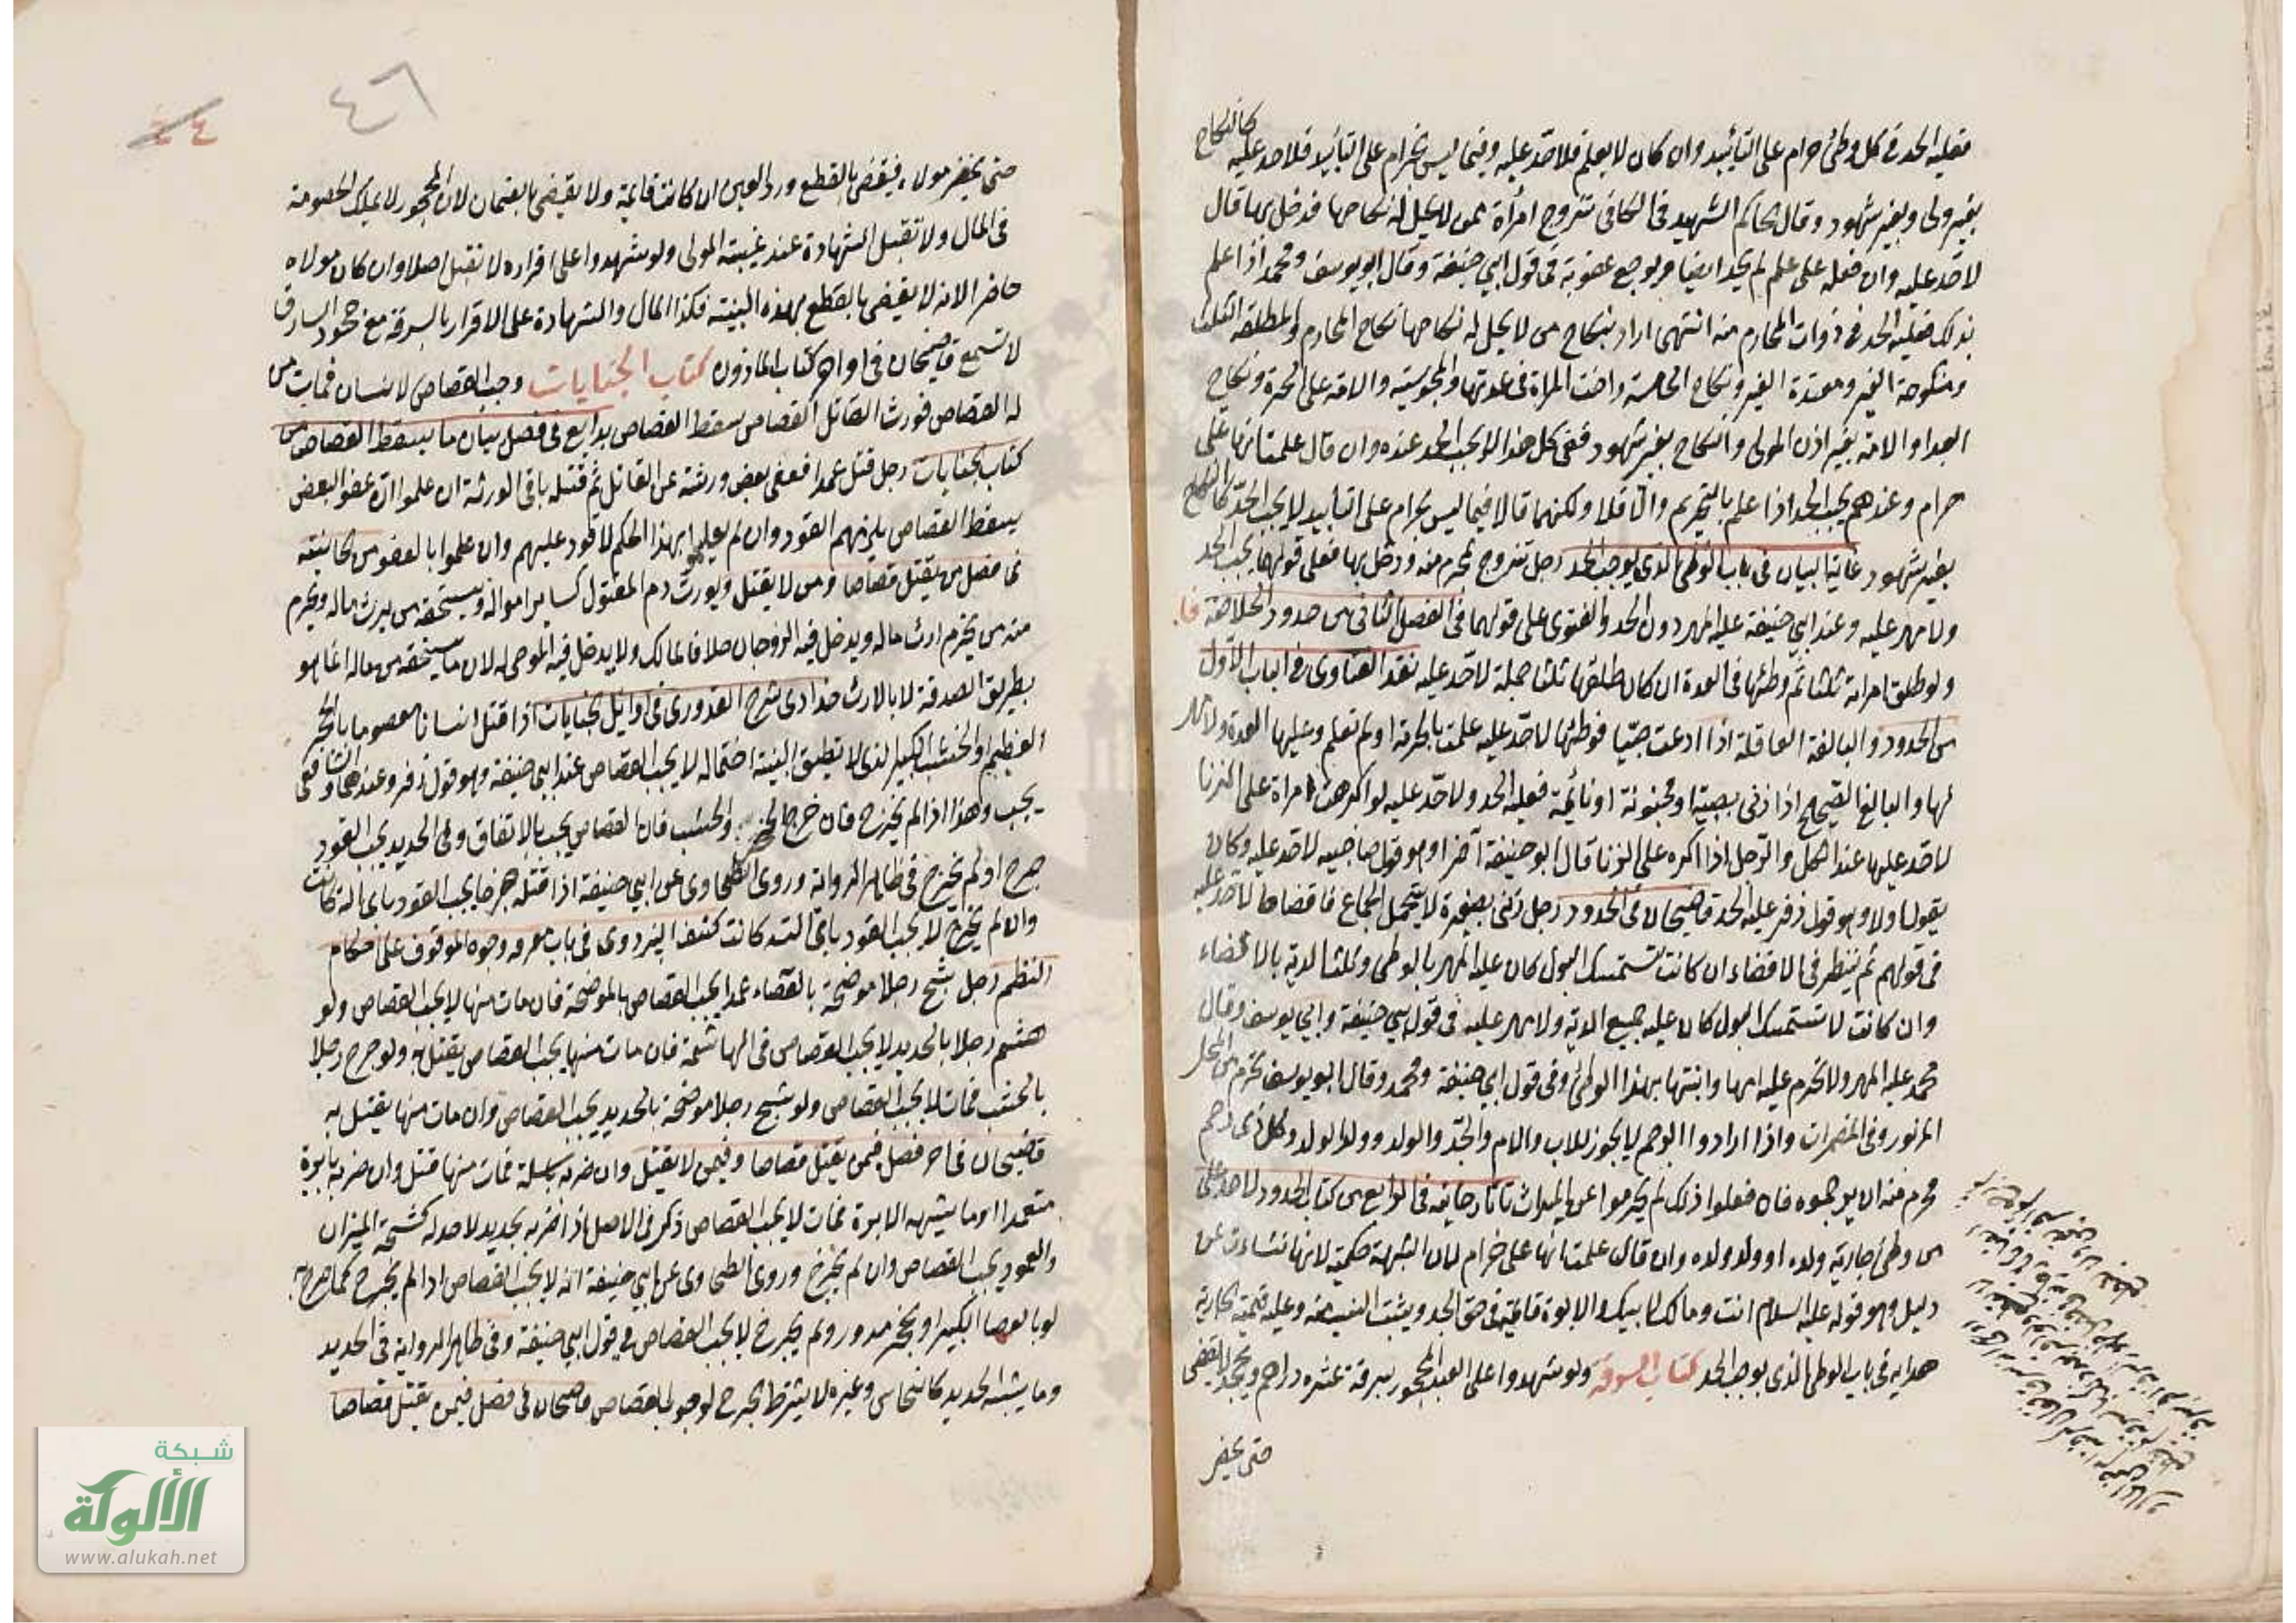 فعليه الحد في كل وطئ حرام على التأبيد وان كان لا يعلم فلا حد عليه وفيما ليس بحرام على التأبيد فلا حد عليه كالنكاح
بغير ولى وبغير شهود وقال الحاكم الشهيد في الكافي تزوج امرأة ممن لا يحل له نكاحها فدخل بها قال
لا حد عليه وان فعله على علم لم يحد ايضا ويوجع عقوبة في قول ابي حنيفة وقال ابو يوسف ومحمد اذا علم
بذلك فعليه الحد في ذوات المحارم منه انتهى اراد بنكاح من لا يحل له نكاحها نكاح المحارم والمطلقة الثلث
ومنكوحة الغير ومعتدة الغير ونكاح الخامسة واخت المراة في عدتها والمجوسية والامة على الحرة ونكاح
العبد او الامة بغير اذن المولى والنكاح بغير شهود ففي كل هذا لا يجب الحد عنده وان قال علمت انها على
حرام وعندهم يجب الحد اذا علم بالتحريم والا فلا ولكنهما قالا فيما ليس بحرام على التأبيد لا يجب الحد كالنكاح
بغير شهود غاية البيان في باب الوطئ الذي يوجب الحد رجل تزوج لمحرم منه ودخل بها فعلى قولهما يجب الحد
ولا مهر عليه وعند ابي حنيفة عليه المهر دون الحد والفتوى على قولهما في الفصل الثاني من حدود الخلاصة
ولو طلق امراته ثلثا ثم وطئها في العدة ان كان طلقها ثلثا جملة لا حد عليه نقد الفتاوى في الباب الاول
من الحدود والبالغة العاقلة اذا ادعت صبيا فوطئها لا حد عليه علمت بالحرمة او لم تعلم وعليها العدة ولا مهر
لها والبالغ الصحيح اذا زنى بصبية او مجنونة او نائمة فعليه الحد ولا حد عليه لو اكرهت امراة على الزنا
لا حد عليها عند الكل والرجل اذا اكره على الزنا قال ابو حنيفة آخرا وهو قول صاحبيه لا حد عليه وكان
يقول اولا وهو قول زفر عليه الحد قاضيخان في الحدود رجل زنى بصغيرة لا يتحمل الجماع فافضاها لا حد عليه
في قولهم ثم ينظر في الافضاء ان كانت تستمسك البول كان عليه المهر بالوطئ وثلث الدية بالافضاء
وان كانت لا تستمسك البول كان عليه جميع الدية ولا مهر عليه في قول ابي حنيفة وابي يوسف وقال
محمد عليه المهر ولا تحرم عليه امها وابنتها بهذا الوطئ وفي قول ابي حنيفة ومحمد وقال ابو يوسف تحرم من المحل
المزبور وفي المضمرات واذا ارادوا الرجم لا يجوز للاب والام والجد والولد وولد الولد وكل ذي رحم
محرم منه ان يرجموه فان فعلوا ذلك لم يحرموا عن الميراث تاتارخانيه في الرابع من كتاب الحدود لا حد على
من وطئ جارية ولده او ولد ولده وان قال علمت انها على حرام لان الشبهة حكمية لانها نشاءت عن
دليل وهو قوله عليه السلام انت ومالك لابيك والابوة قائمة في حق الجد ويثبت النسب منه وعليه قيمة الجارية
هدايه في باب الوطئ الذي يوجب الحد كتاب السرقة ولو شهدوا على العبد المحجور بسرقة عشرة دراهم ويجحد لا يقضى
حتى يحضر
٤٦
٤٤
حتى يحضر مولاه فيقضى بالقطع ورد العين ان كانت قائمة ولا يقضى بالضمان لان المحجور لا يملك الخصومة
في المال ولا تقبل الشهادة عند غيبة المولى ولو شهدوا على اقراره لا تقبل اصلا وان كان مولاه
حاضرا لانه لا يقضى بالقطع بهذه البينة فكذا المال والشهادة على الاقرار بالسرقة مع جحود السارق
لا تسمع قاضيخان في اواخر كتاب الماذون كتاب الجنايات وجب القصاص لانسان فمات من
له القصاص فورث القاتل القصاص سقط القصاص بدايع في فصل بيان ما يسقط القصاص من
كتاب الجنايات رجل قتل عمدا فعفى بعض ورثته عن القاتل ثم قتله باقي الورثة ان علموا ان عفو البعض
يسقط القصاص يلزمهم القود وان لم يعلموا بهذا الحكم لا قود عليهم وان علموا بالعفو من الخانية
في فصل من يقتل قصاصا ومن لا يقتل ويورث دم المقتول كسائر امواله ويستحقه من يرث ماله ويحرم
منه من يحرم ارث ماله ويدخل فيه الزوجان خلافا لمالك ولا يدخل فيه الموصى له لان ما يستحقه من ماله انما هو
بطريق الصدقة لا بالارث حدادى شرح القدورى في اوائل الجنايات اذا قتل انسانا معصوما بالحجر
العظيم او الخشب الكبير الذى لا تطيق البنية احتماله لا يجب القصاص عند ابي حنيفة وهو قول زفر وعندهما والشافعى
يجب وهذا اذا لم يخرج فان جرح الحجر والخشب فان القصاص يجب بالاتفاق وفي الحديد يجب القود
جرح او لم يجرح في ظاهر الرواية وروى الطحاوى عن ابي حنيفة اذا قتله جرحا يجب القود باى الة كانت
وان لم يجرح لا يجب القود باى الة كانت كشف البزدوى في باب معرفة وجوه الموقوف على احكام
النظم رجل شج رجلا موضحة بالعصاء عمدا يجب القصاص بالموضحة فان مات منها لا يجب القصاص ولو
هشم رجلا بالحديد لا يجب القصاص في الهاشمة فان مات منها يجب القصاص يقتل به ولو جرح رجلا
بالخشب فمات لا يجب القصاص ولو شج رجلا موضحة بالحديد يجب القصاص وان مات منها يقتل به
قاضيخان في اخر فصل فيمن يقتل قصاصا وفيمن لا يقتل وان ضربه بمسلة فمات منها قتل وان ضربه بابرة
متعمدا او ما يشبه الابرة فمات لا يجب القصاص ذكر في الاصل اذا ضربه بحديد لا حد له كسنجة الميزان
والعمود يجب القصاص وان لم يجرح وروى الطحاوى عن ابي حنيفة انه لا يجب القصاص اذا لم يجرح كما جرح به
لو بالعصا الكبير او بحجر مدور ولم يجرح لا يجب القصاص في قول ابي حنيفة وفي ظاهر الرواية في الحديد
وما يشبه الحديد كالنحاس وغيره لا يشترط الجرح لوجوب القصاص قاضيخان في فصل فيمن يقتل قصاصا
شبكة
الألوكة
www.alukah.net